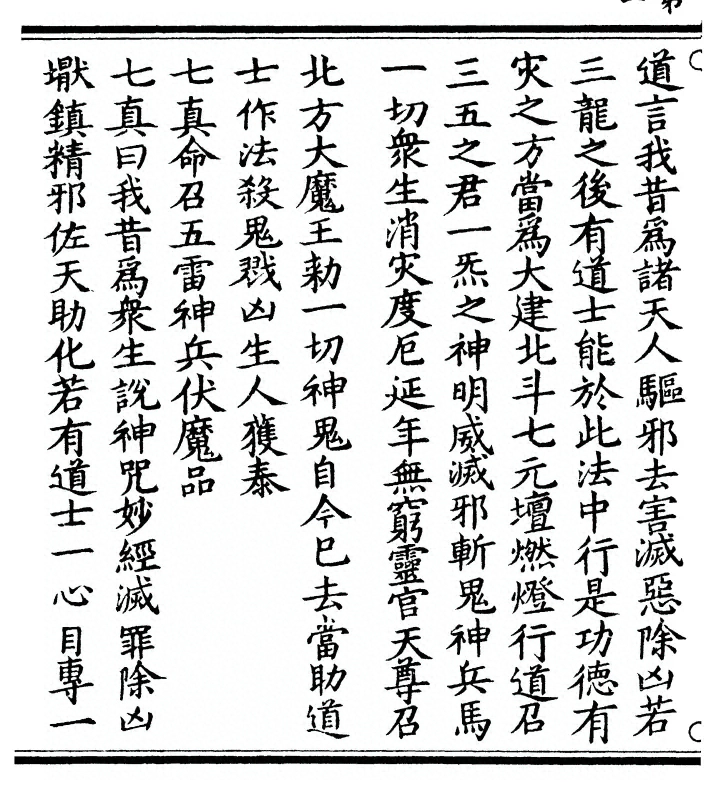 道言我昔為諸天人驅邪去害滅惡除凶若
三龍之後有道士能於此法中行是功德有
灾之方當為大建北斗七元壇燃燈行道召
三五之君一炁之神明威滅邪斬鬼神兵馬
一切衆生消灾度厄延年無窮靈官天尊召
北方大魔王勑一切神鬼自今已去當助道
士作法殺鬼戮凶生人獲泰
七真命召五雷神兵伏魔品
七真曰我昔為衆生說神咒妙經滅罪除凶
鎮精邪佐天助化若有道士一心目專一